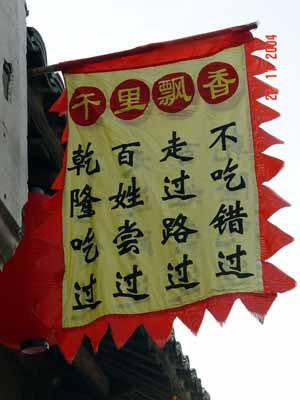 千里飘香
乾隆吃过
百姓尝过
走过路过
不吃错过
2004